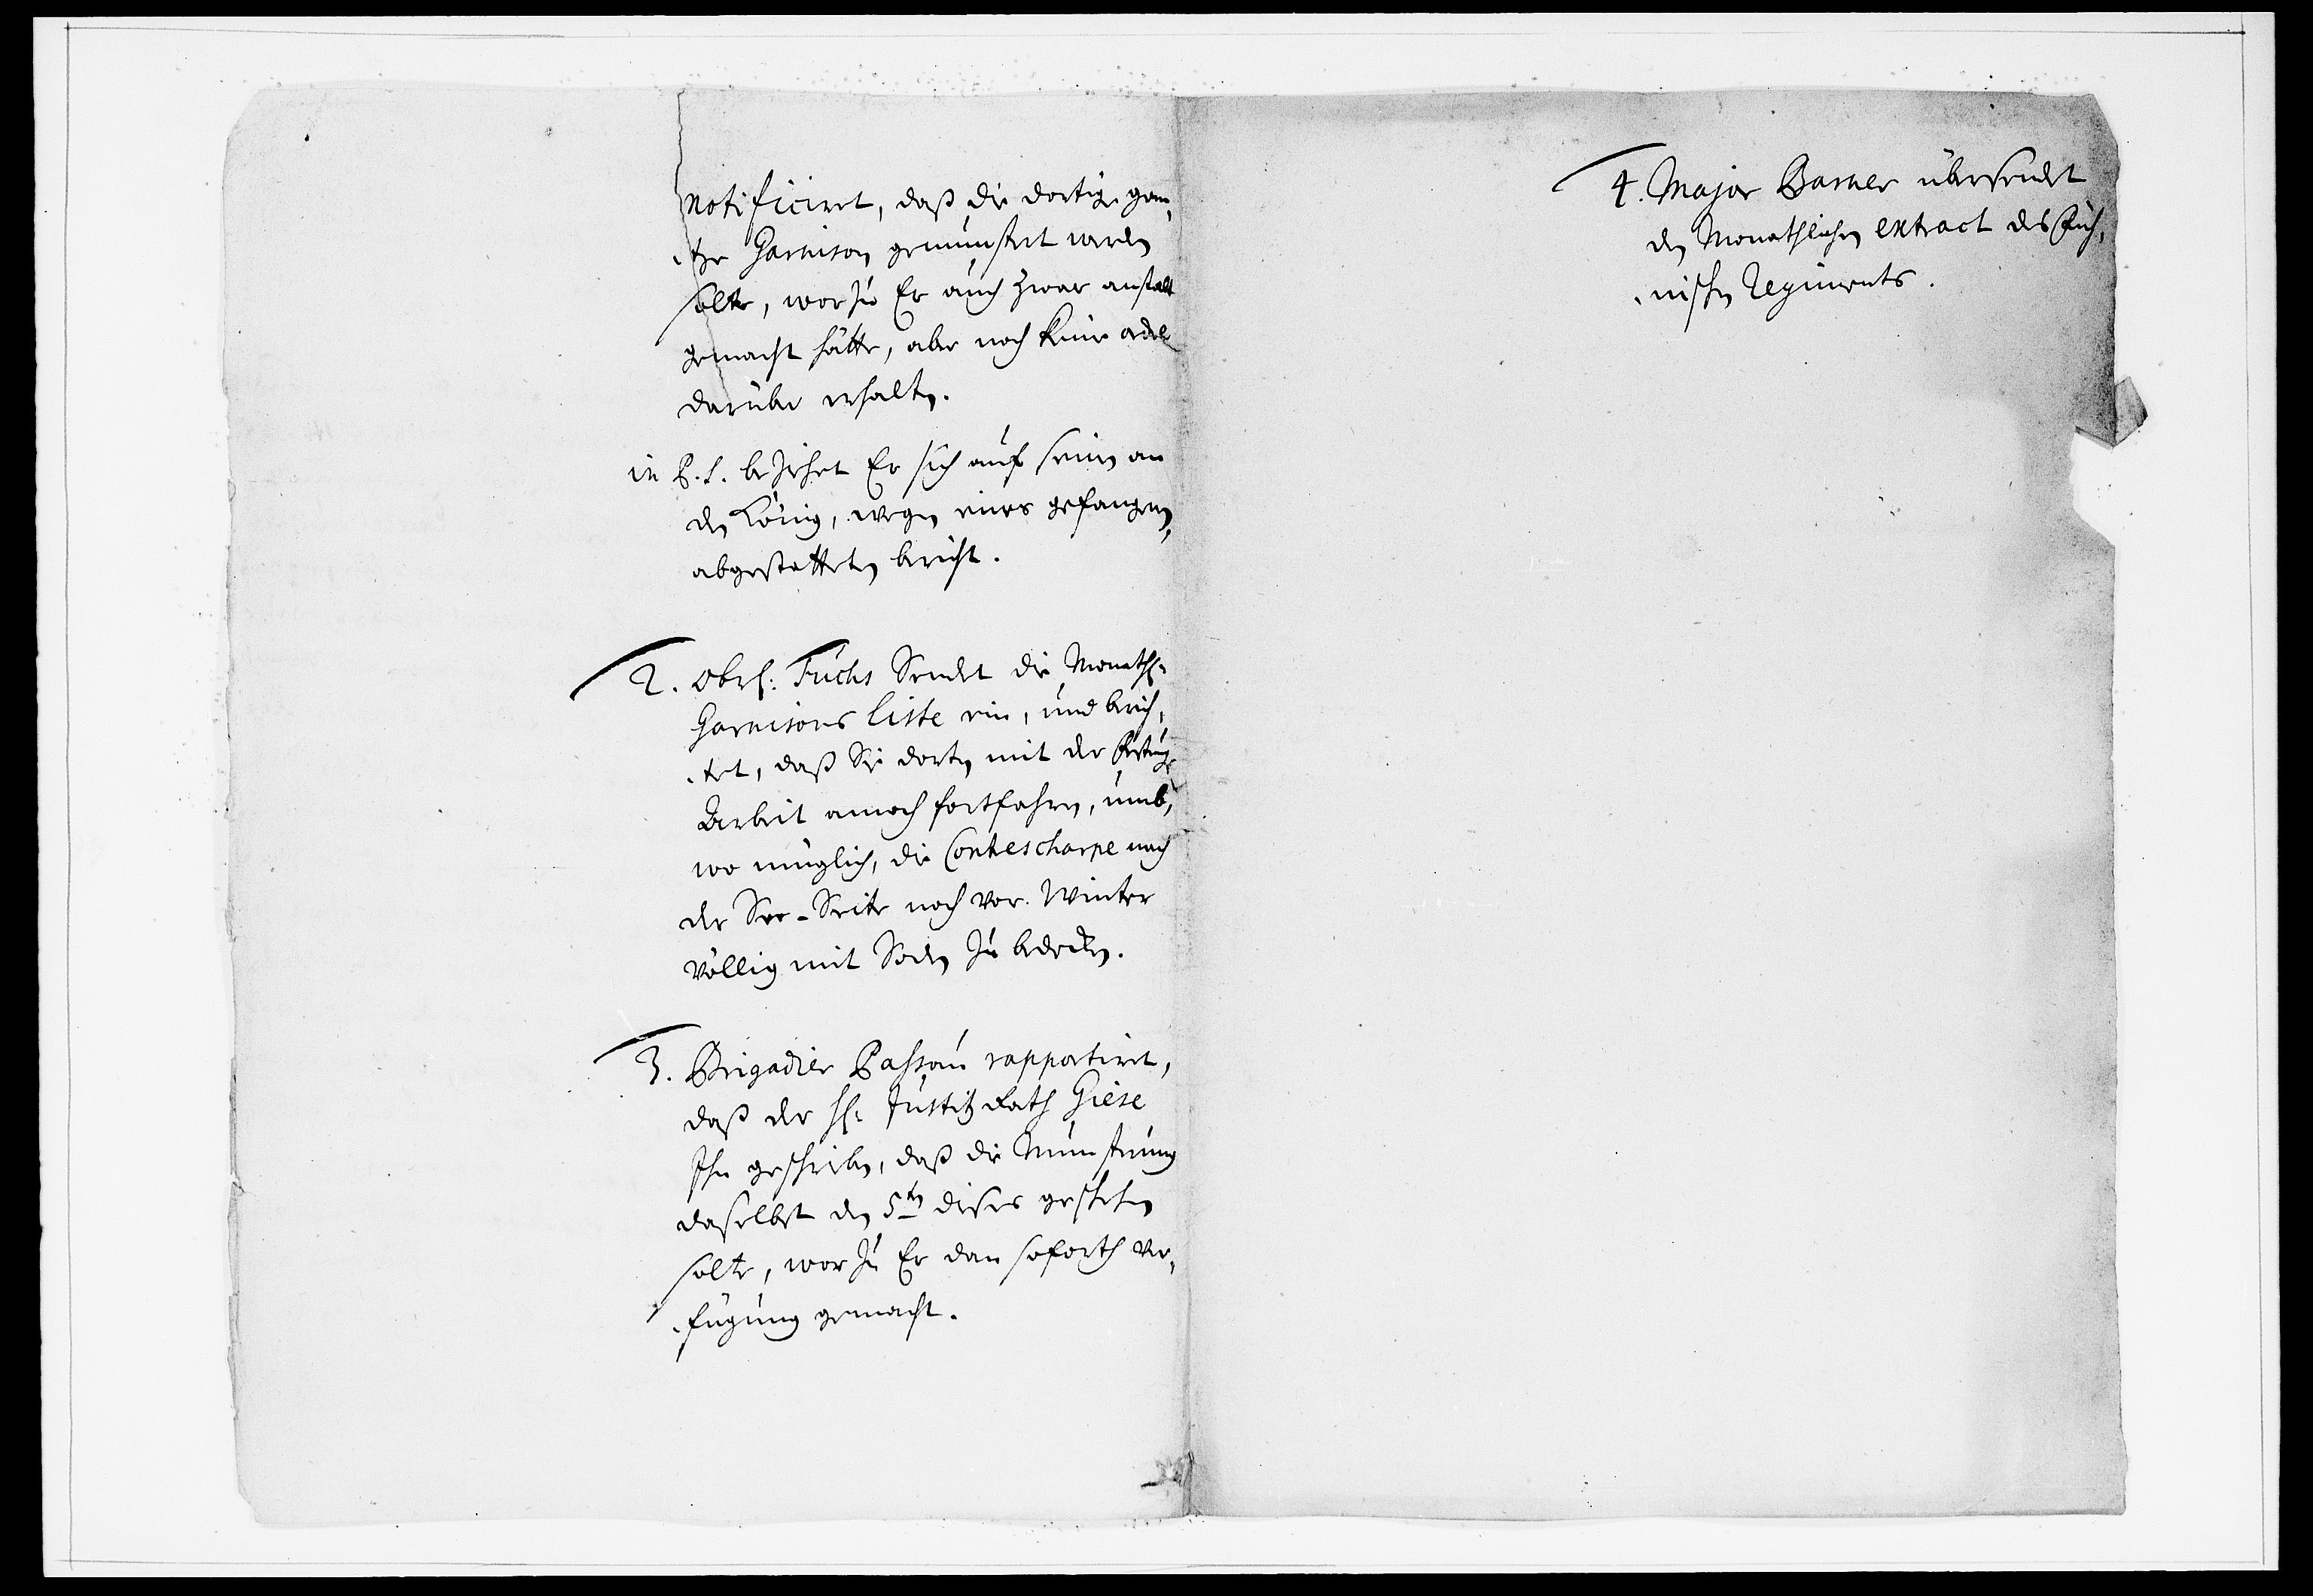 notificiret, daß die dortige gan,
,tze Garnison gemunstert werden
solte, worzu Er auch zwar anstalt
gemacht hätte, aber noch keine order
darüber erhalten.
in P.S. beziehet Er sich auf seinen an
den König, wegen eines gefangenen,
abgestatteten bericht.
2. Obrl: Fuchs Sendet die Monathl:
Garnisons liste ein, und berich,
,tet, daß Sie dorten mit der
Arbeit annoch fortfahren, umb,
wo müglich, die Contescharpe nach
der See-Seite noch vor Winter
völlig mit Soden zu bedecken.
3. Brigadier Passau rapportiret,
daß der H: Justitz Rath Giese
Ihn geschrieben, daß die Munsterung
daselbst den 5ten dieses geschehen
solte, worzu Er dan soforth ver,
,fügung gemacht.
4. Major Basner übersendet
den Monathlichen extract des
,nischen Regiments.